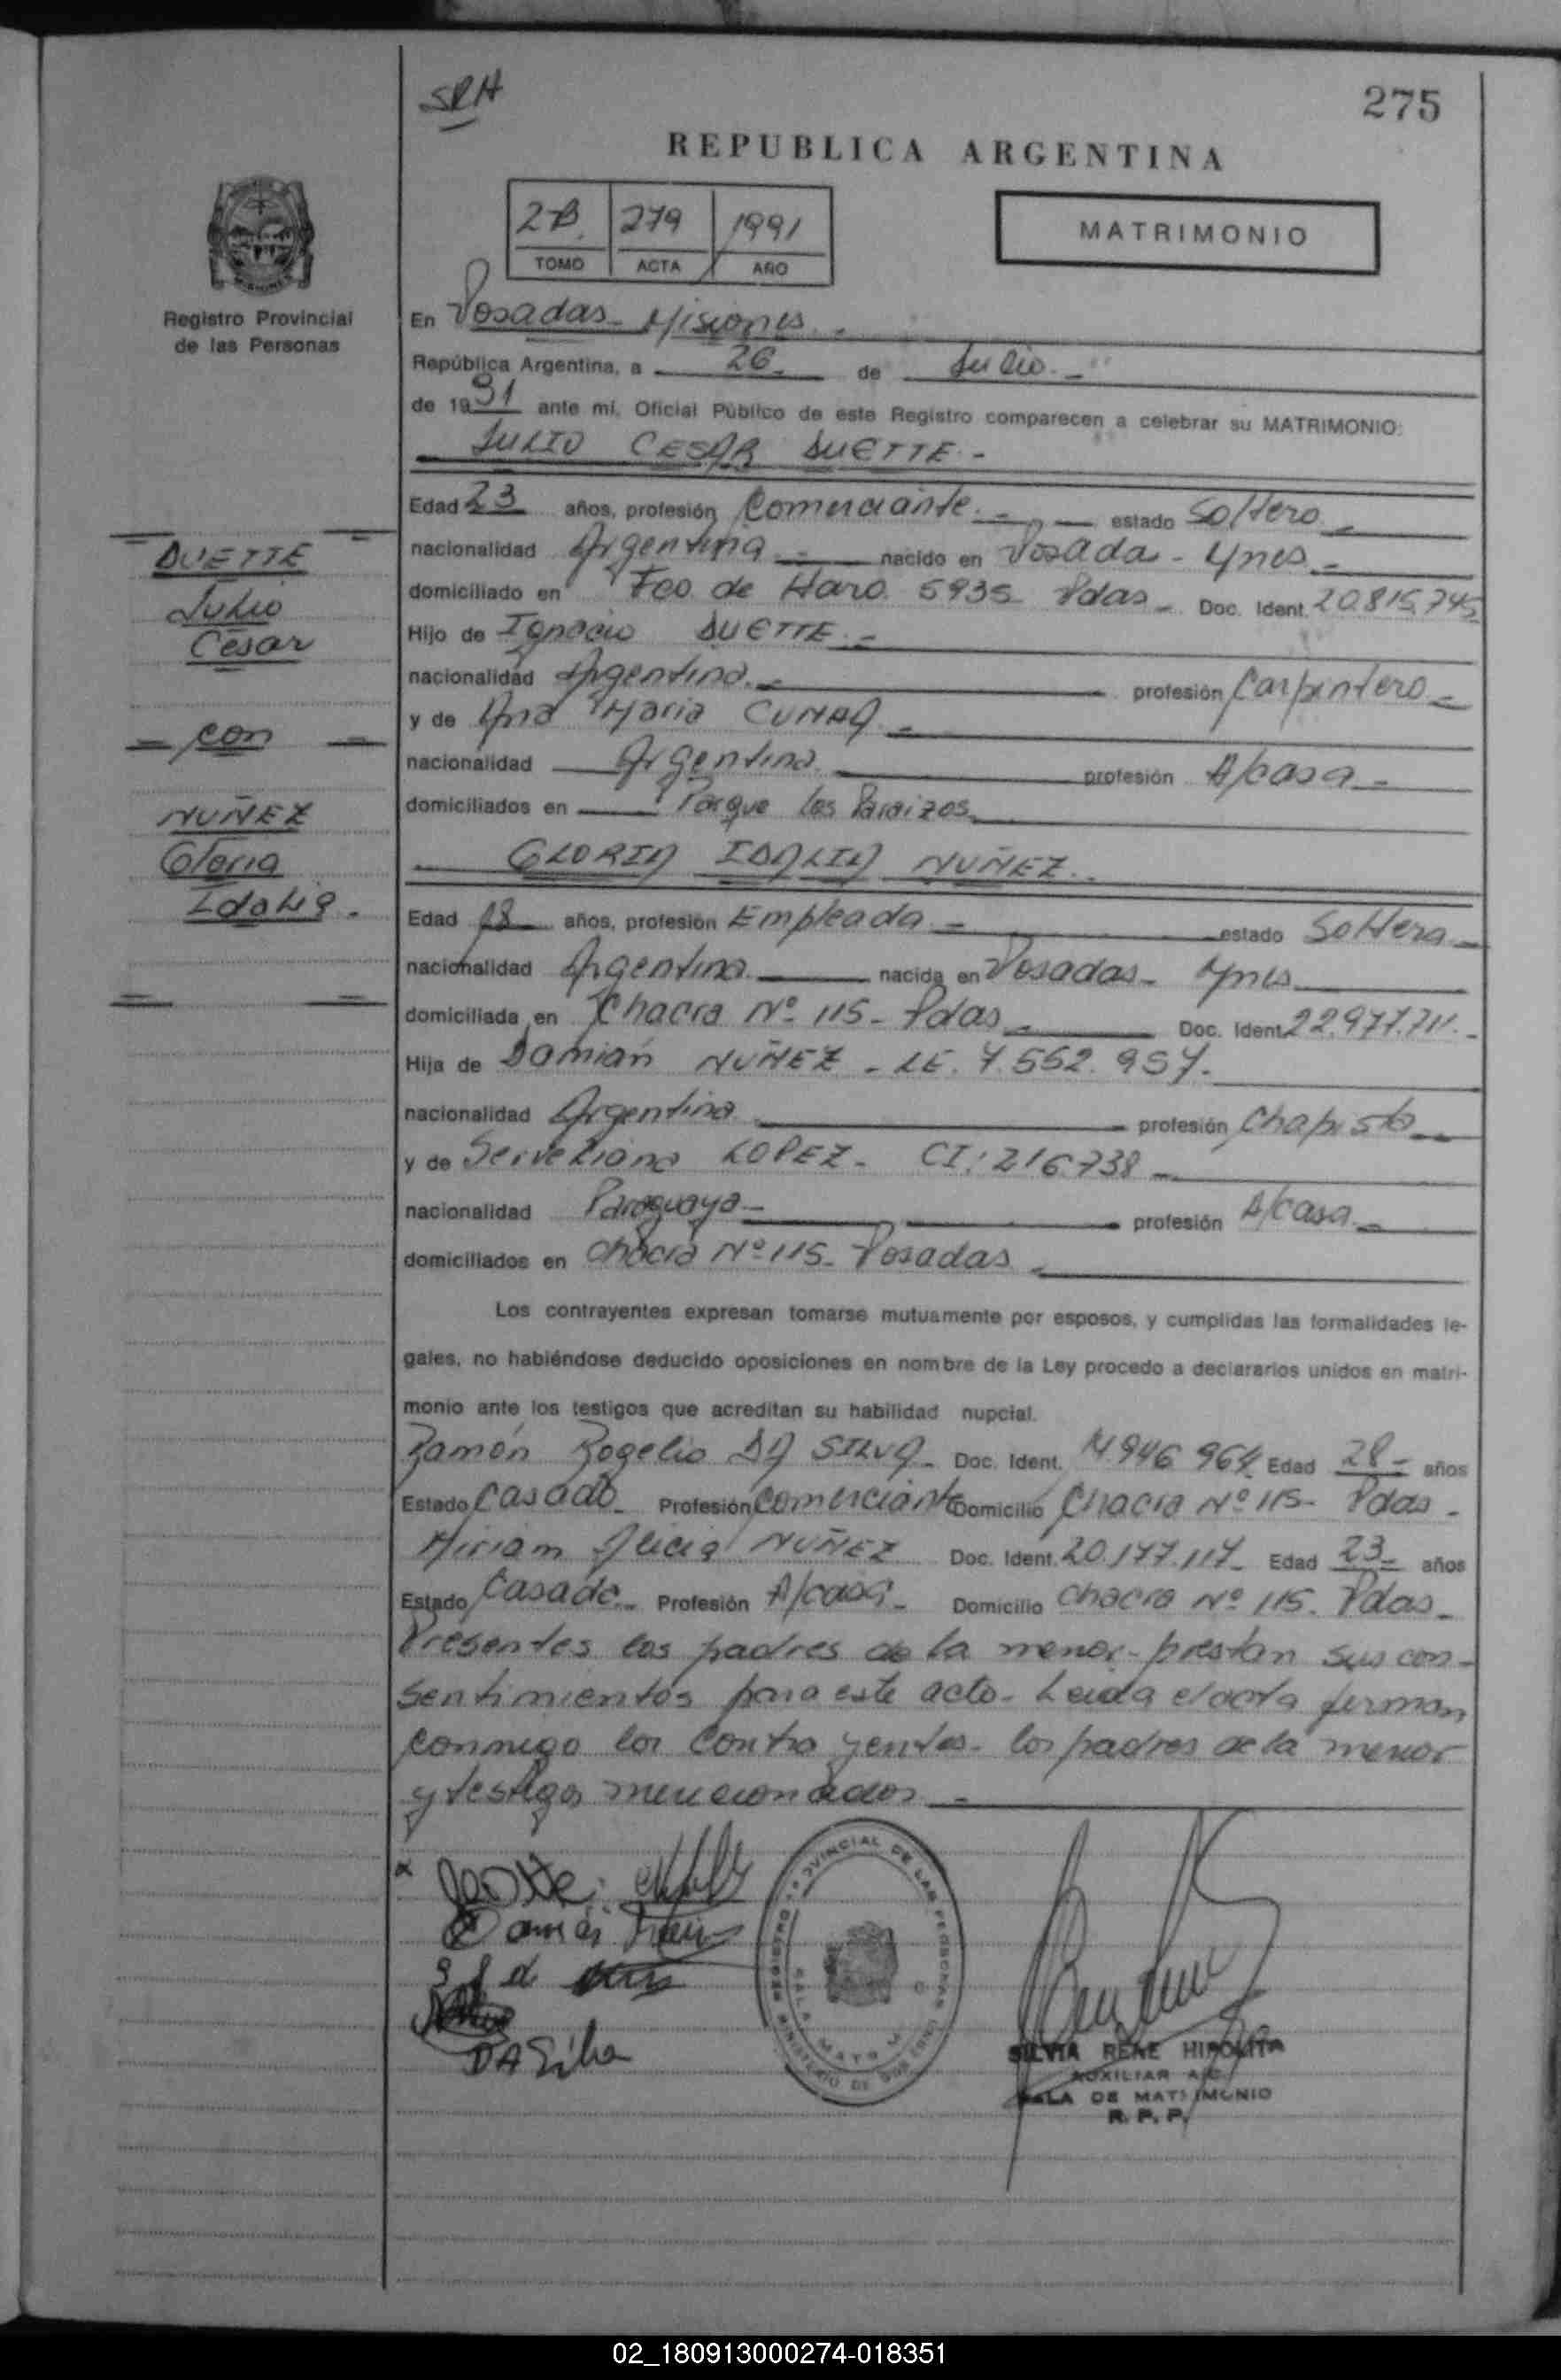 SRH
275
REPUBLICA ARGENTINA
2-B. 279 1991
TOMO ACTA AÑO
MATRIMONIO
Registro Provincial
de las Personas
En Posadas - Misiones. -
República Argentina, a 26 de Julio. -
de 1991 ante mí, Oficial Público de este Registro comparecen a celebrar su MATRIMONIO:
JULIO CESAR DUETTE. -
Edad 23 años, profesión Comerciante. - estado Soltero. -
nacionalidad Argentina - nacido en Posadas - Mnes. -
domiciliado en Fco de Haro. 5935 Pdas - Doc. Ident. 20.815.745
Hijo de Ignacio DUETTE. -
nacionalidad Argentina. - profesión Carpintero -
y de Ana Maria CUNHA. -
nacionalidad Argentina. profesión A/casa -
domiciliados en Parque los Paraizos
GLORIA IDALIA NUÑEZ. -
Edad 18 años, profesión Empleada. - estado Soltera -
nacionalidad Argentina. nacida en Posadas - Mnes
domiciliada en Chacra Nº 115 - Pdas - Doc. Ident. 22.977.711. -
Hija de Damián NUÑEZ - LE. 7.552.957.
nacionalidad Argentina profesión Chapista -
y de Serveliana LOPEZ - CI: 216.738 -
nacionalidad Paraguaya - profesión A/casa -
domiciliados en Chacra Nº 115 - Posadas -
Los contrayentes expresan tomarse mutuamente por esposos, y cumplidas las formalidades le-
gales, no habiéndose deducido oposiciones en nombre de la Ley procedo a declararlos unidos en matri-
monio ante los testigos que acreditan su habilidad nupcial.
Ramón Rogelio DA SILVA - Doc. Ident. 14.946.964 Edad 28 - años
Estado Casado - Profesión Comerciante Domicilio Chacra Nº 115 - Pdas -
Miriam Alicia NUÑEZ Doc. Ident. 20.177.117 - Edad 23 - años
Estado Casada. - Profesión A/casa - Domicilio Chacra Nº 115. Pdas -
Presentes los padres de la menor - prestan sus con-
sentimientos para este acto - Leida el acta firman
conmigo los contrayentes - los padres de la menor
y testigos mencionados -
DUETTE
Julio
César
- con -
NUÑEZ
Gloria
Idalia.
DA Silva
REGISTRO PROVINCIAL DE LAS PERSONAS
SILVIA RENE HIPOLITA
AUXILIAR A/C
SALA DE MATRIMONIO
R. P. P.
02_180913000274-018351